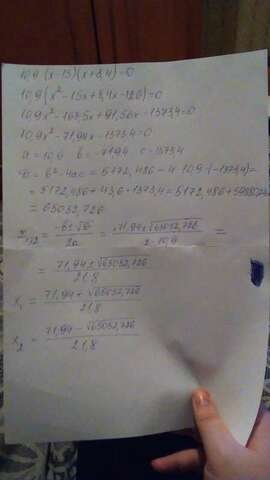 10,9 (x-15)(x+8,4)=0
10,9(x²-15x+8,4x-126)=0
10,9x²-163,5x+91,56x-1373,4=0
10,9x²-71,94x-1373,4=0
a=10,9 b=-71,94 c=-1373,4
D=b²-4ac=5172,486-4·10,9·(-1373,4)=
=5172,486+43,6·1373,4=5172,486+
=65052,726
x₁,₂ = = =
= 71,94±√65052,726 / 21,8
x₁ = 71,94+√65052,726 / 21,8
x₂ = 71,94-√65052,726 / 21,8